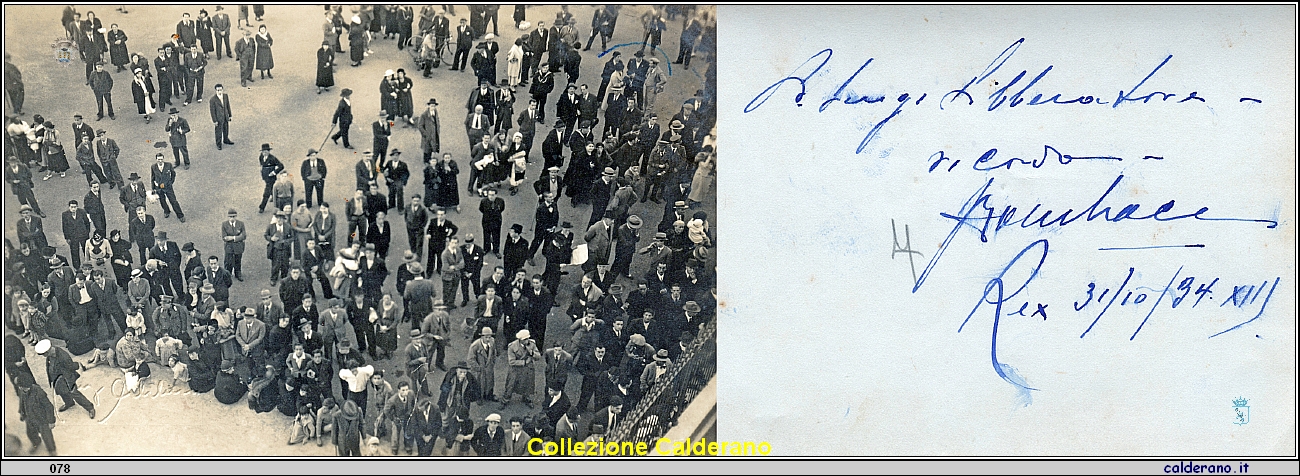 A Luigi Libberatore -
ricordo -
Rex 31/10/34 XIII
Collezione Calderano
078
calderano.it